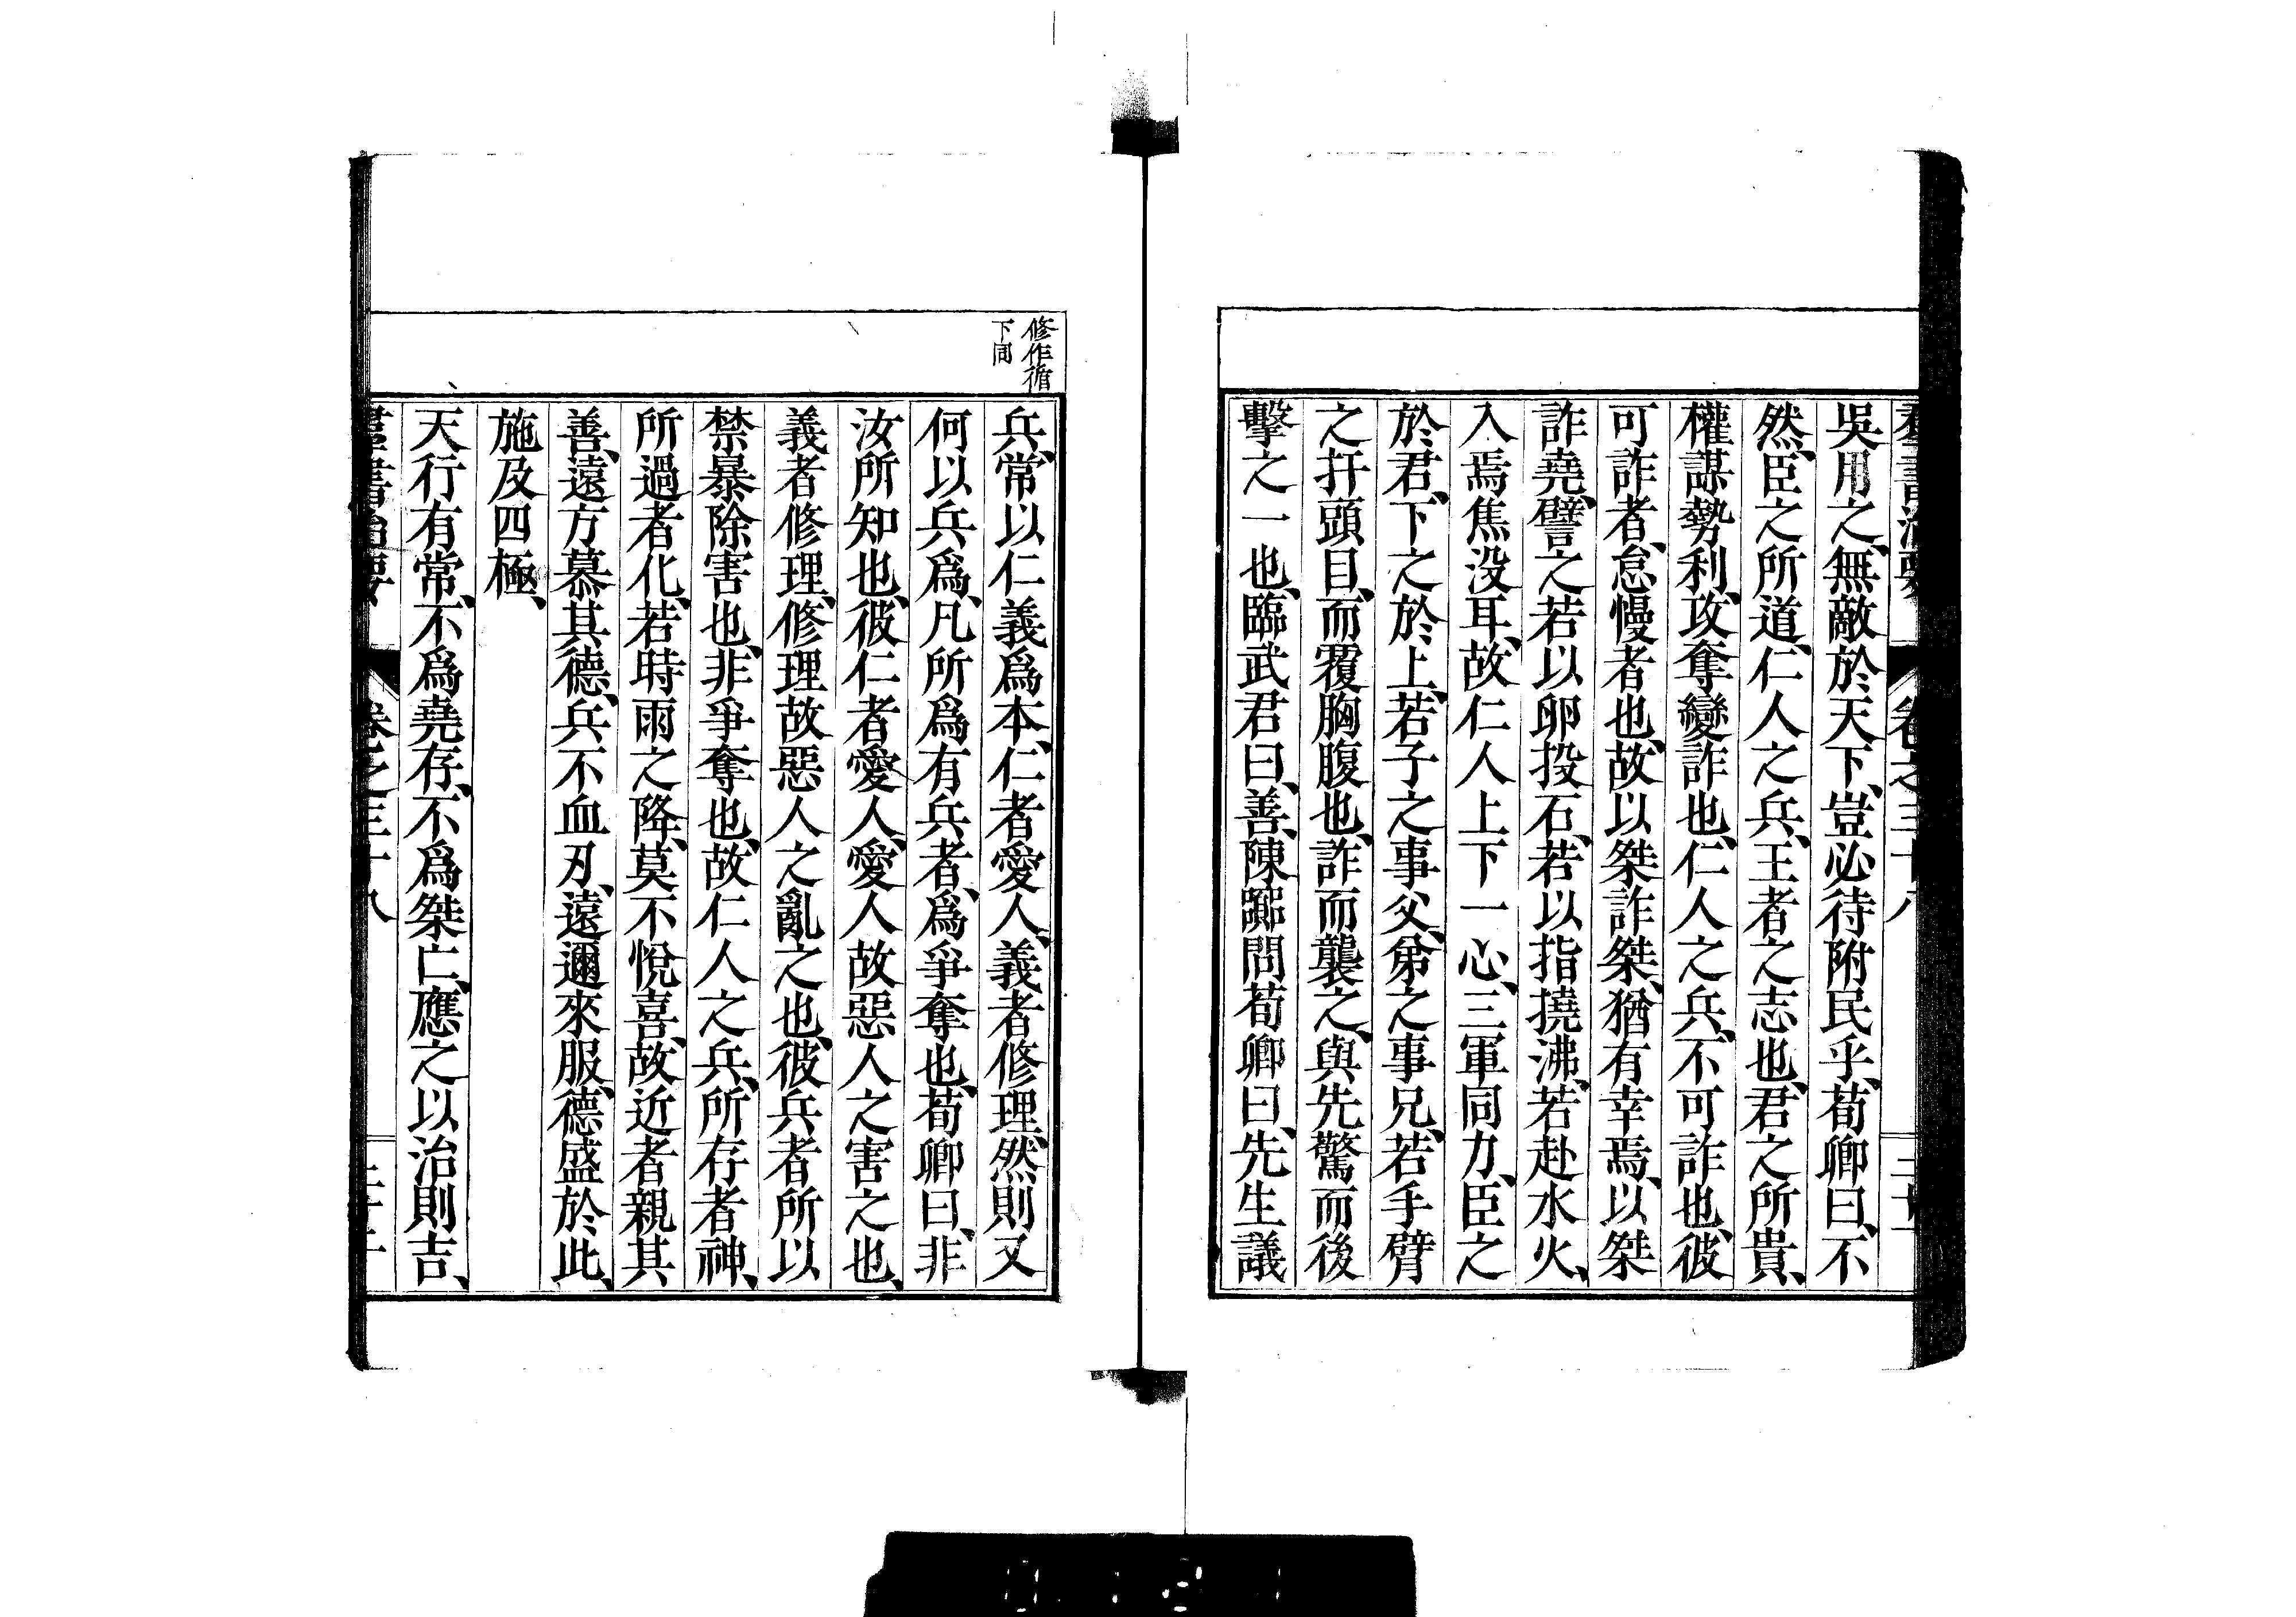 吳用之、無敵於天下、豈必待附民乎、荀卿曰、不
然、臣之所道、仁人之兵、王者之志也、君之所貴、
權謀勢利、攻奪變詐也、仁人之兵、不可詐也、彼
可詐者、怠慢者也、故以桀詐桀、猶有幸焉、以桀
詐堯、譬之若以卵投石、若以指撓沸、若赴水火、
入焉焦沒耳、故仁人上下一心、三軍同力、臣之
於君、下之於上、若子之事父、弟之事兄、若手臂
之扞頭目、而覆胸腹也、詐而襲之、與先驚而後
擊之一也、臨武君曰、善、陳囂問荀卿曰、先生議
修作循
下同
兵、常以仁義爲本、仁者愛人、義者修理、然則又
何以兵爲、凡所爲有兵者、爲爭奪也、荀卿曰、非
汝所知也、彼仁者愛人、愛人故惡人之害之也、
義者修理、修理故惡人之亂之也、彼兵者所以
禁暴除害也、非爭奪也、故仁人之兵、所存者神、
所過者化、若時雨之降、莫不悅喜、故近者親其
善、遠方慕其德、兵不血刃、遠邇來服、德盛於此、
施及四極、
天行有常、不爲堯存、不爲桀亡、應之以治則吉、
羣書治要 卷之三十八